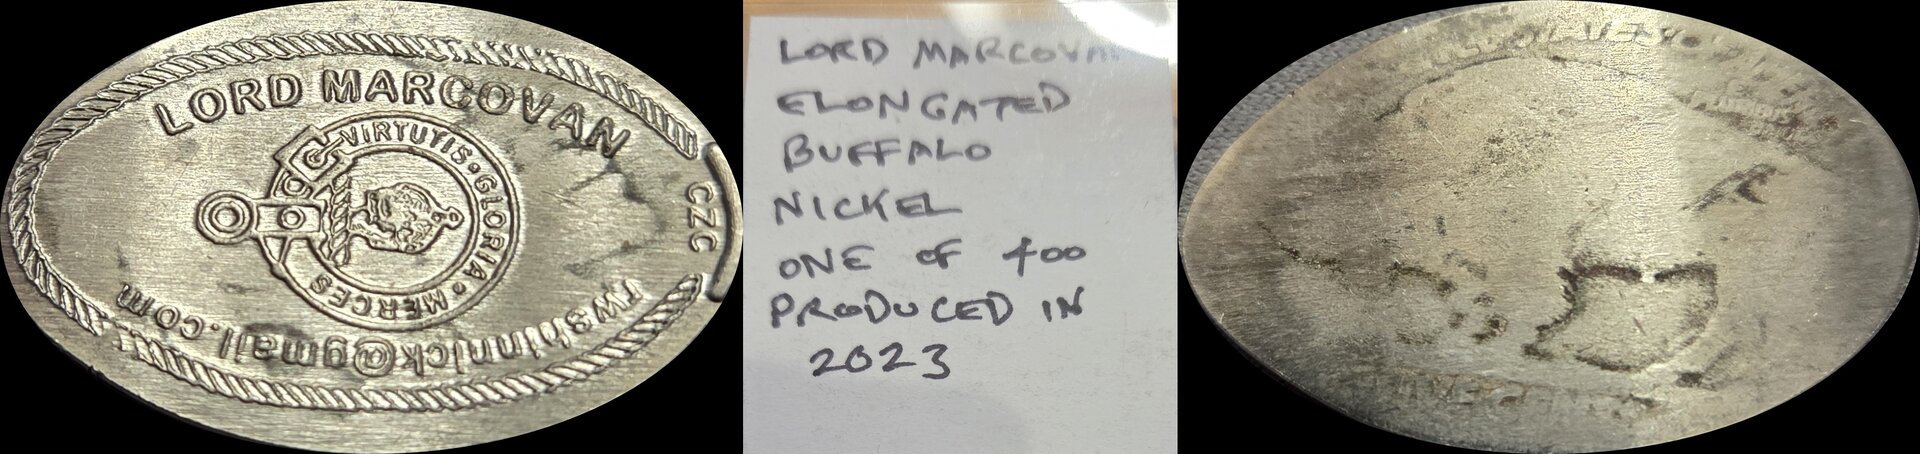 LORD MARCOVAN
VIRTUTIS • GLORIA • MERCES
CZC
rwshinnick@gmail.com
LORD MARCOVAN
ELONGATED
BUFFALO
NICKEL
ONE OF 400
PRODUCED IN
2023